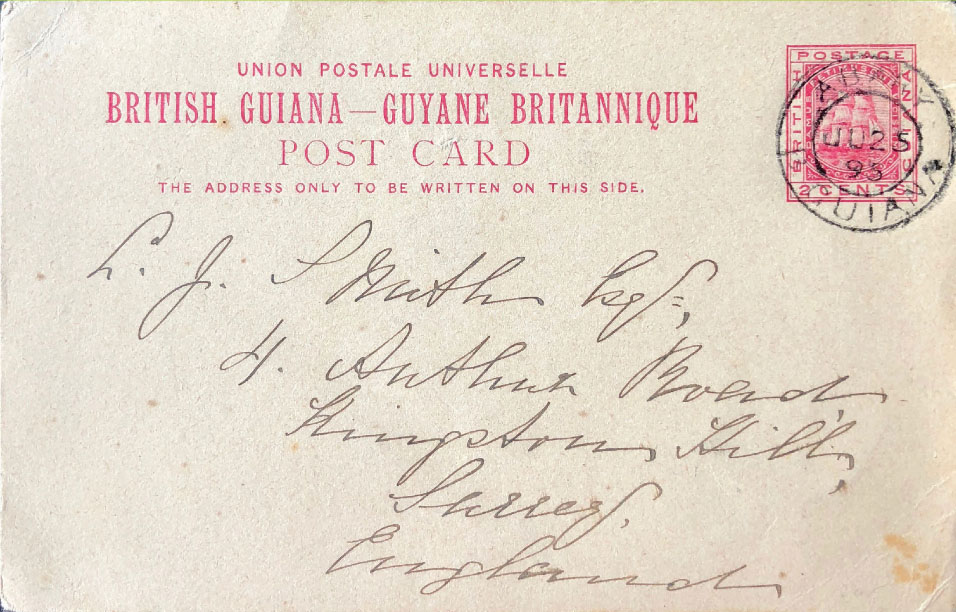 UNION POSTALE UNIVERSELLE
BRITISH GUIANA—GUYANE BRITANNIQUE
POST CARD
THE ADDRESS ONLY TO BE WRITTEN ON THIS SIDE.
POSTAGE
BRITISH
GUIANA
2 CENTS
ABARY
JU 25
95
GUIANA
L. J. Smith Esq.,
4. Arthur Road
Kingston Hill,
Surrey.
England